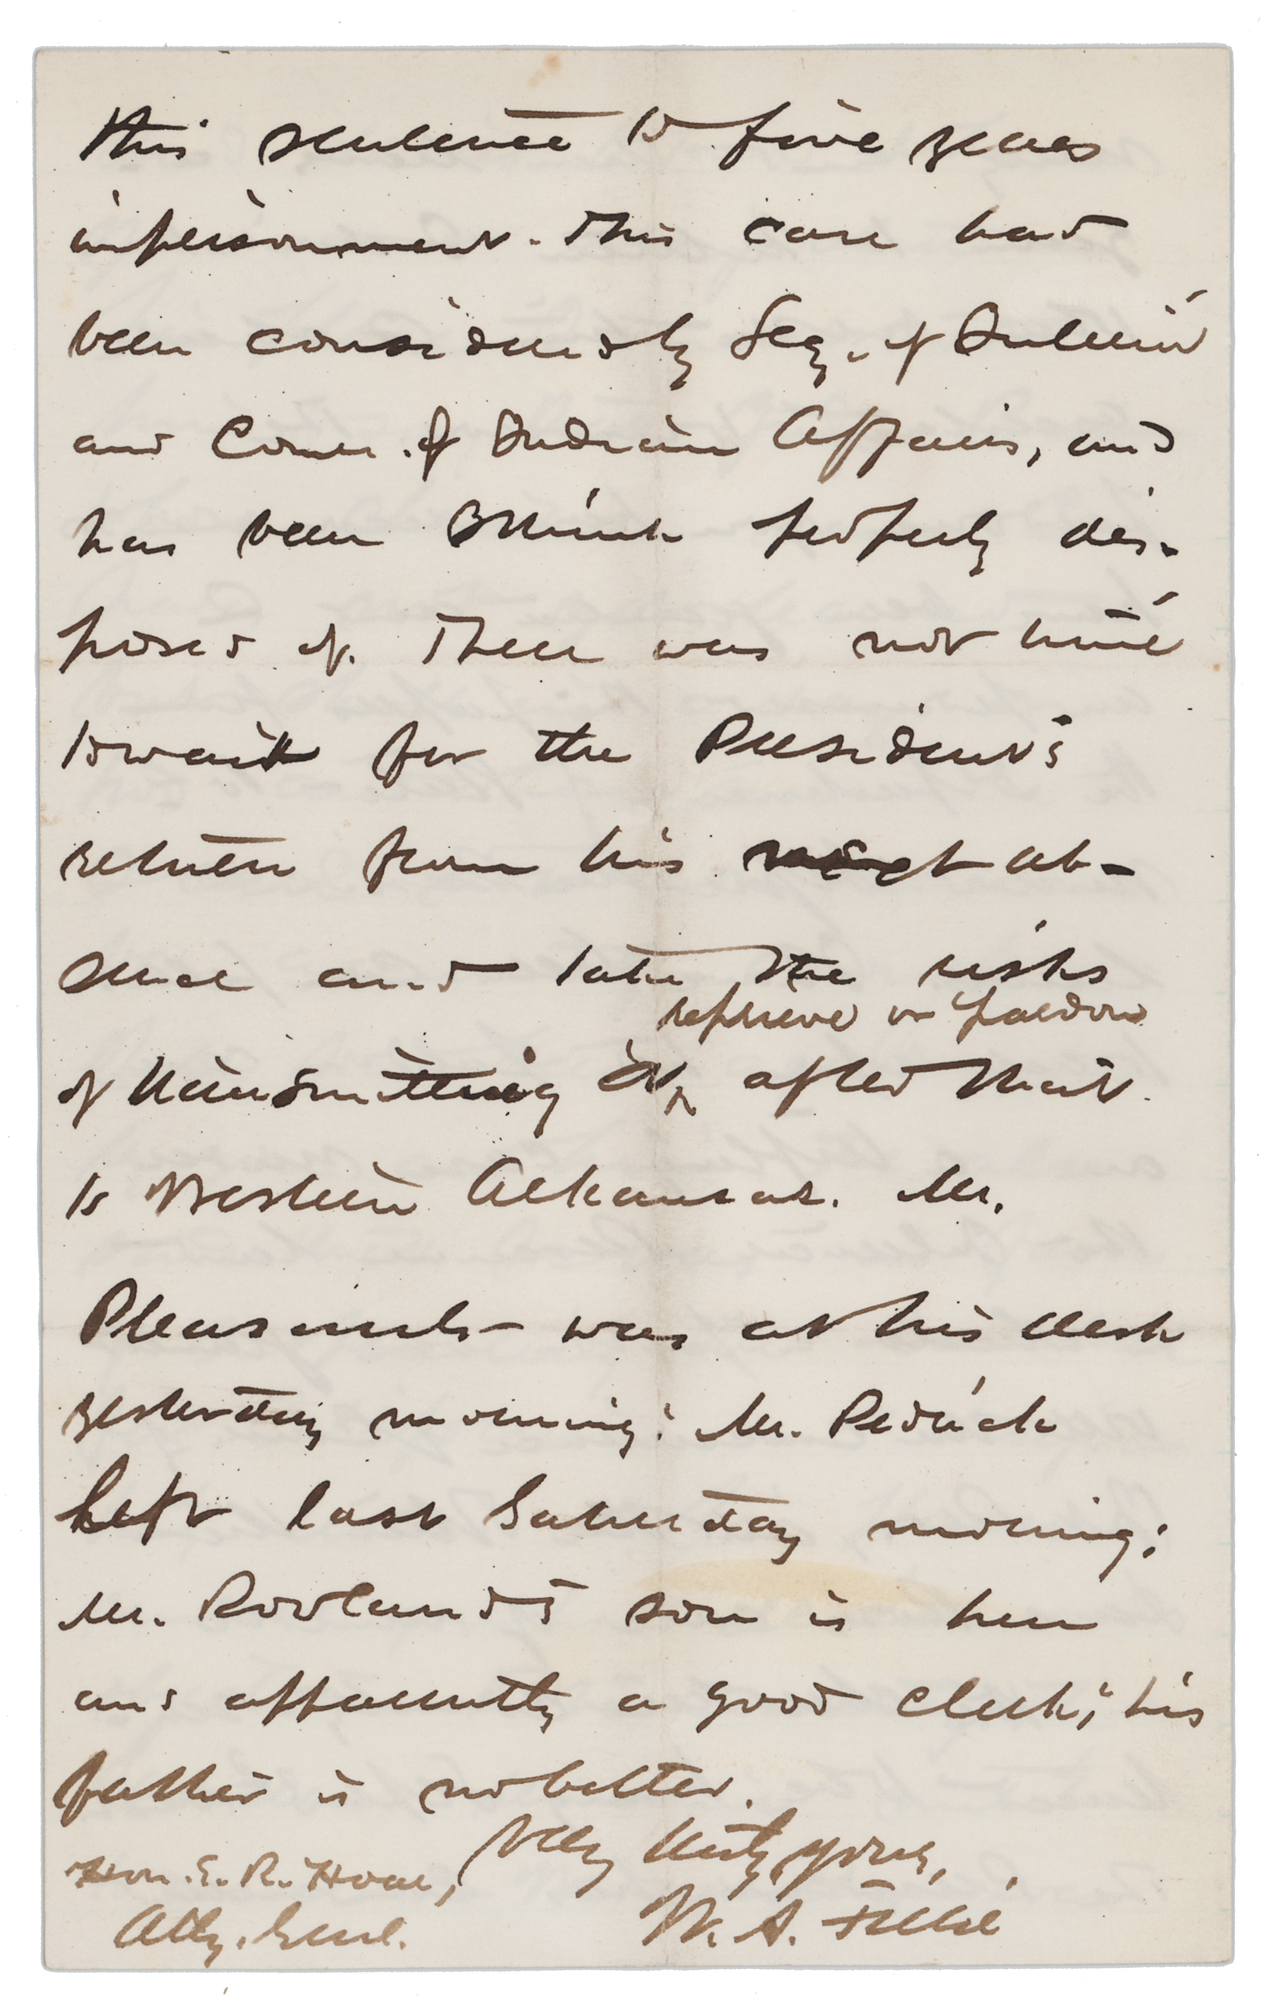 this sentence to five years
imprisonment. This case had
been considered by Secy. of Interior
and Comr. of Indian Affairs, and
has been I think properly dis-
posed of. There was not time
to wait for the President's
return from his next ab-
sence and take the risks
reprieve or pardon
of transmitting a after that
to Western Arkansas. Mr.
Pleasants was at his desk
yesterday morning: Mr. Pedrick
left last Saturday morning:
Mr. Rowland's son is here
and apparently a good clerk; his
father is no better.
Very truly yours,
Hon. E. R. Hoar,
Atty. Genl.
W. A. Field